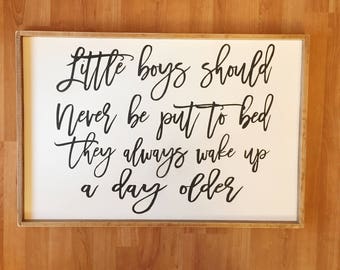 Little boys should
Never be put to bed
they always wake up
a day older